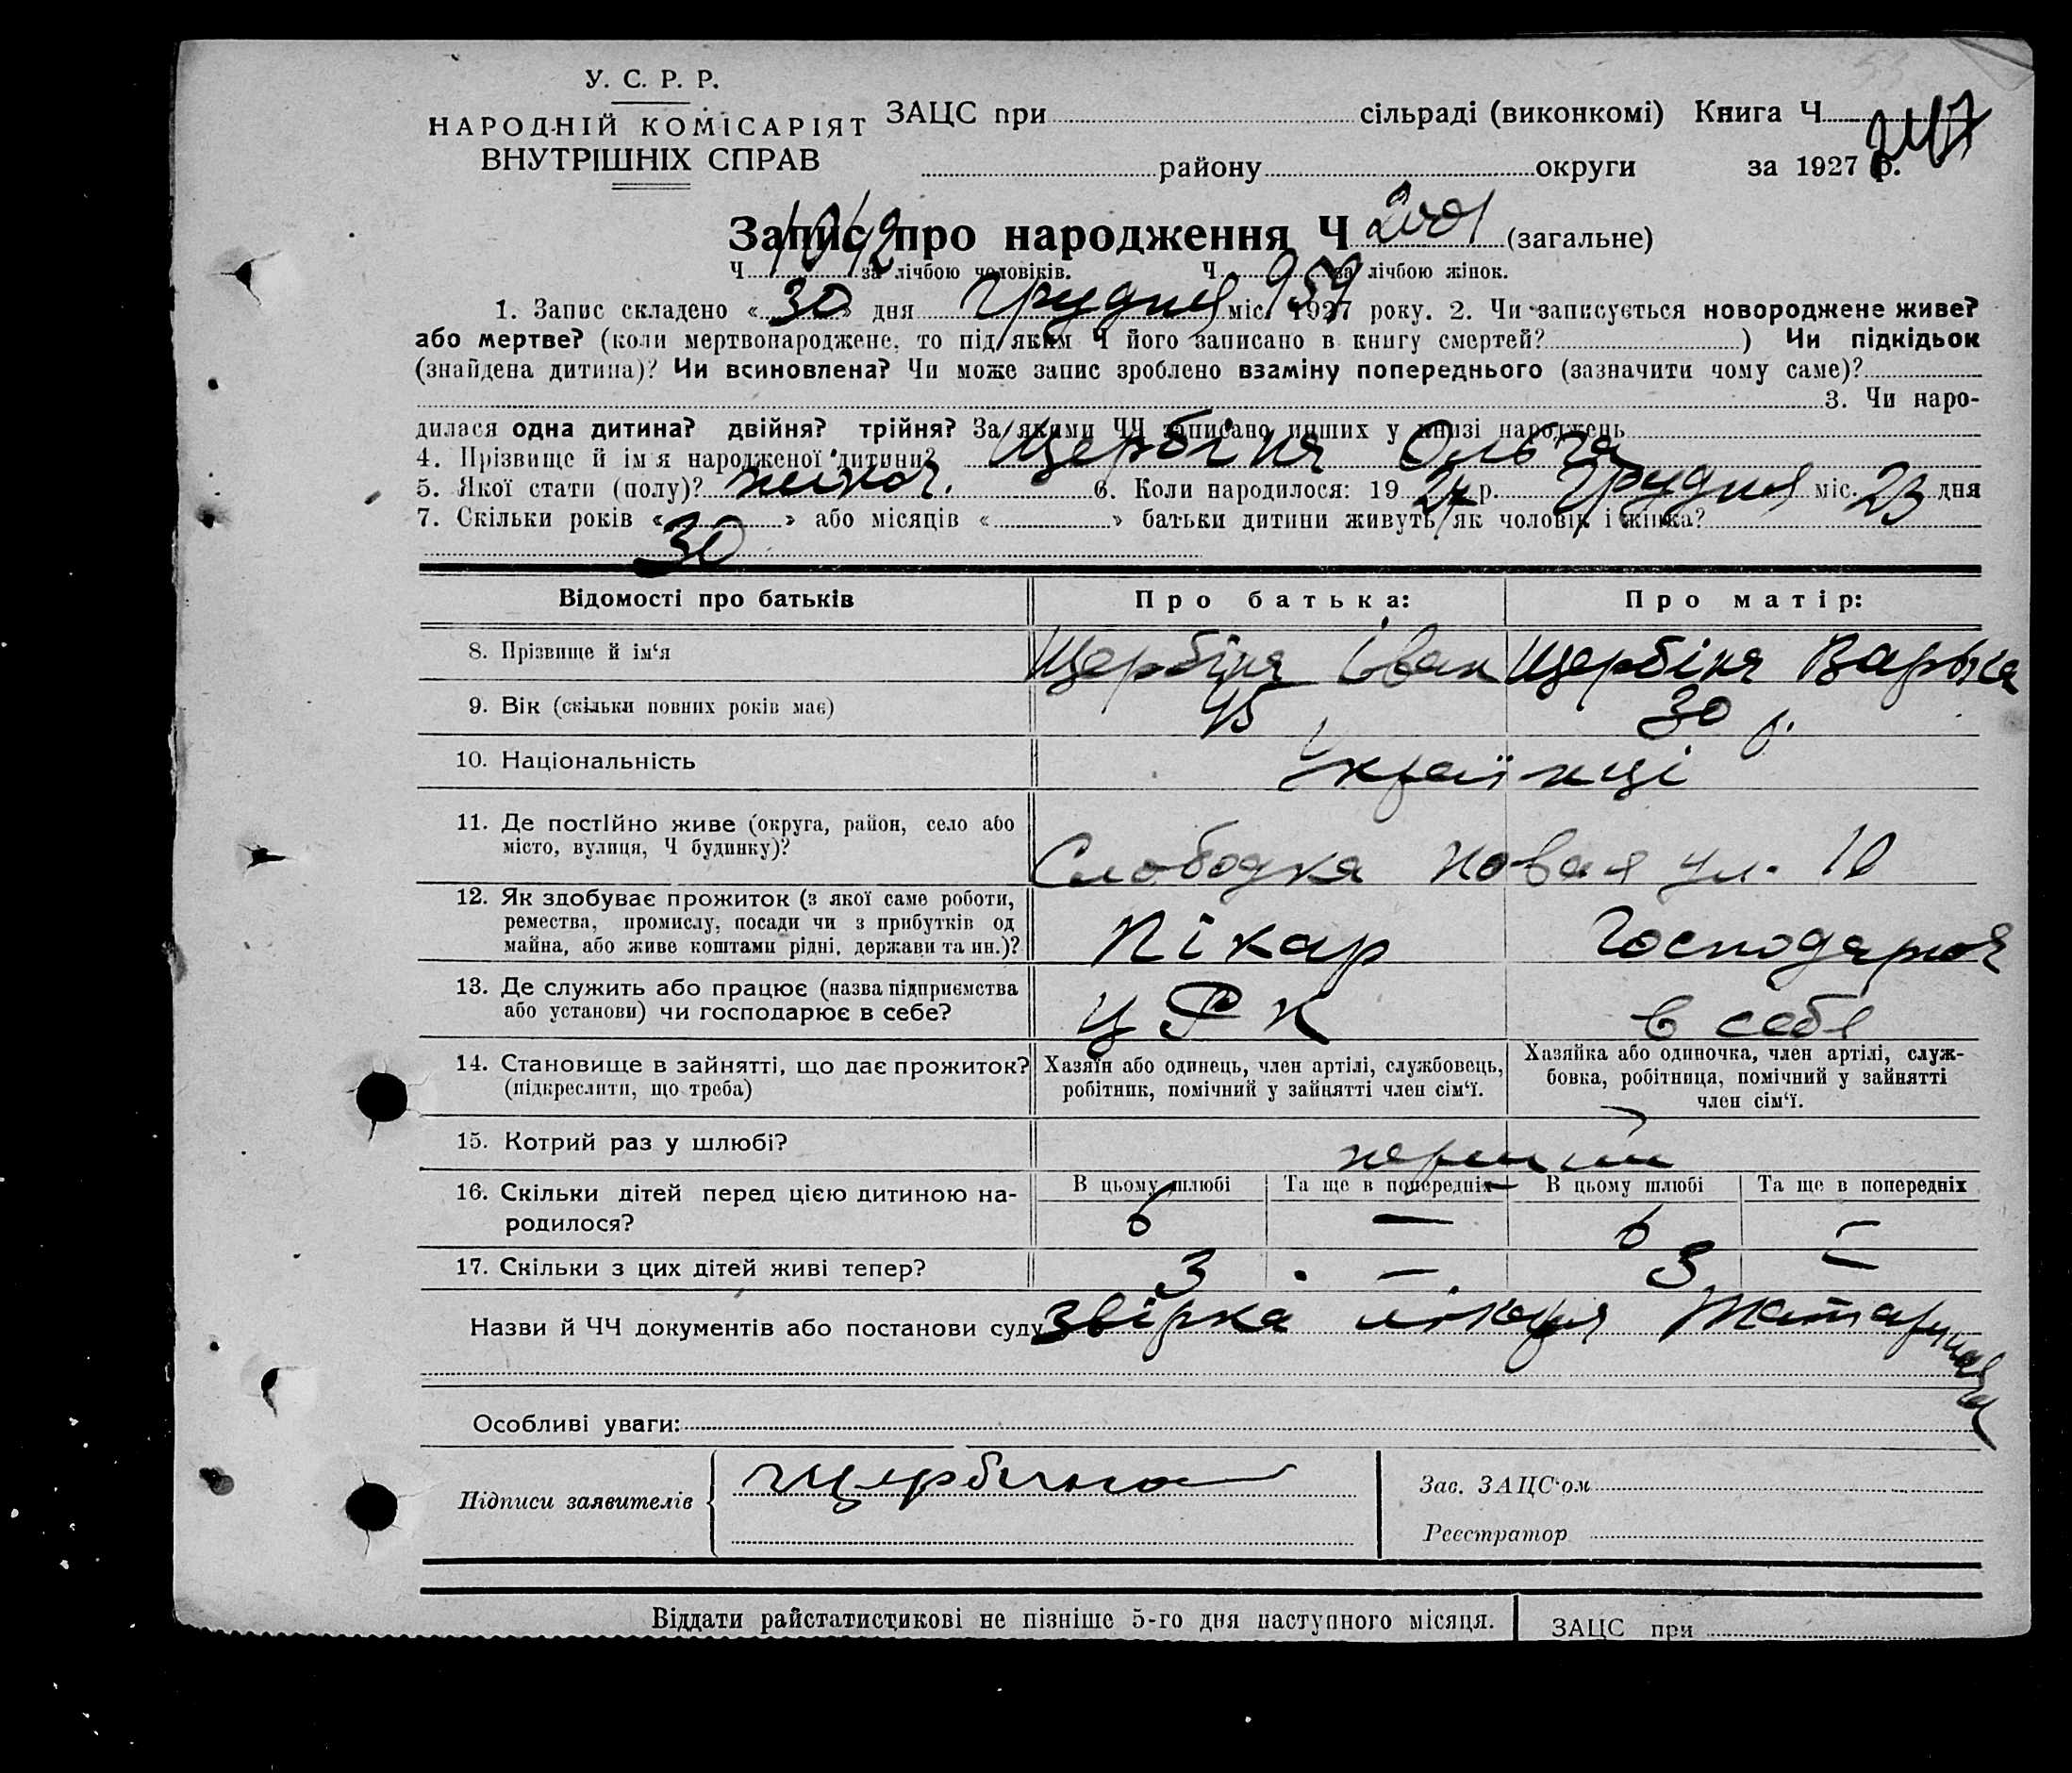 У. С. Р. Р.
НАРОДНІЙ КОМІСАРІЯТ
ВНУТРІШНІХ СПРАВ
ЗАЦС при сільраді (виконкомі) Книга Ч
району округи за 1927 р.
Запис про народження Ч 2001 (загальне)
Ч 1042 за лічбою чоловіків. Ч 959 за лічбою жінок.
1. Запис складено «30» дня Грудня міс. 1927 року. 2. Чи записується новороджене живе?
або мертве? (коли мертвонароджене, то під яким Ч його записано в книгу смертей? ) Чи підкідьок
(знайдена дитина)? Чи всиновлена? Чи може запис зроблено взаміну попереднього (зазначити чому саме)?
3. Чи наро-
дилася одна дитина? двійня? трійня? За якими ЧЧ записано инших у книзі народжень
4. Прізвище й ім'я народженої дитини? Щербіня Ольга
5. Якої стати (полу)? жиноч. 6. Коли народилося: 1927 р. Грудня міс. 23 дня
7. Скільки років « » або місяців « » батьки дитини живуть як чоловік і жінка?
30
Відомості про батьків Про батька: Про матір:
8. Прізвище й ім'я Щербіня Іван Щербіня Варька
9. Вік (скільки повних років має) 45 30 р.
10. Національність Українці
11. Де постійно живе (округа, район, село або
місто, вулиця, Ч будинку)? Слободка Новая ул. 10
12. Як здобуває прожиток (з якої саме роботи,
ремества, промислу, посади чи з прибутків од
майна, або живе коштами рідні, держави та ин.)? Пікар Господарює
13. Де служить або працює (назва підприємства
або установи) чи господарює в себе? ЦРК в себе
14. Становище в зайнятті, що дає прожиток?
(підкреслити, що треба)
Хазяїн або одинець, член артілі, службовець,
робітник, помічний у зайнятті член сім'ї.
Хазяйка або одиночка, член артілі, служ-
бовка, робітниця, помічний у зайнятті
член сім'ї.
15. Котрий раз у шлюбі? перший
16. Скільки дітей перед цією дитиною на-
родилося?
В цьому шлюбі Та ще в попередніх В цьому шлюбі Та ще в попередніх
6 — 6 —
17. Скільки з цих дітей живі тепер? 3 — 3 —
Назви й ЧЧ документів або постанови суду Звірка лікаря
Особливі уваги:
Підписи заявителів Щербина
Зав. ЗАЦС'ом
Реєстратор
Віддати райстатистикові не пізніше 5-го дня наступного місяця. ЗАЦС при